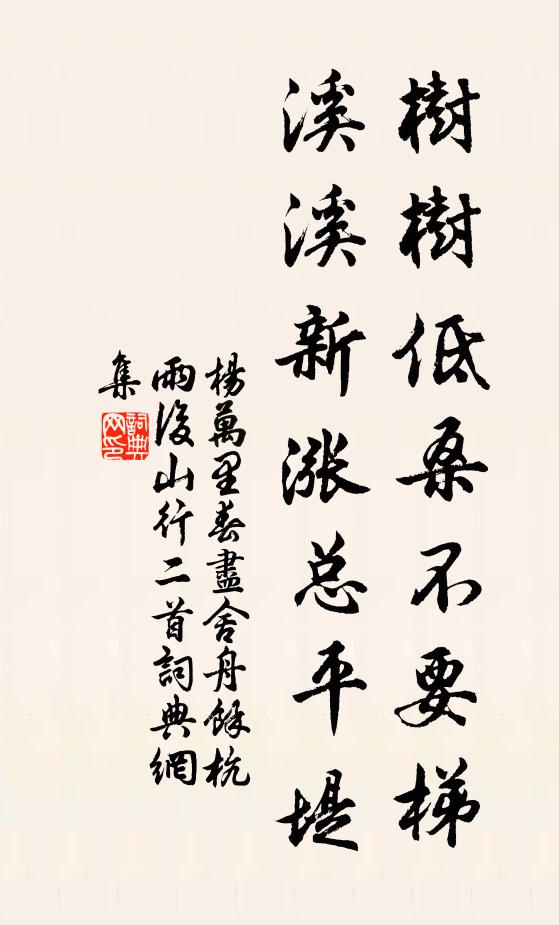 樹樹低桑不要梯
溪溪新漲总平堤
楊萬里春盡舍舟餘杭
雨後山行二首詞典網
集
詞典
网印